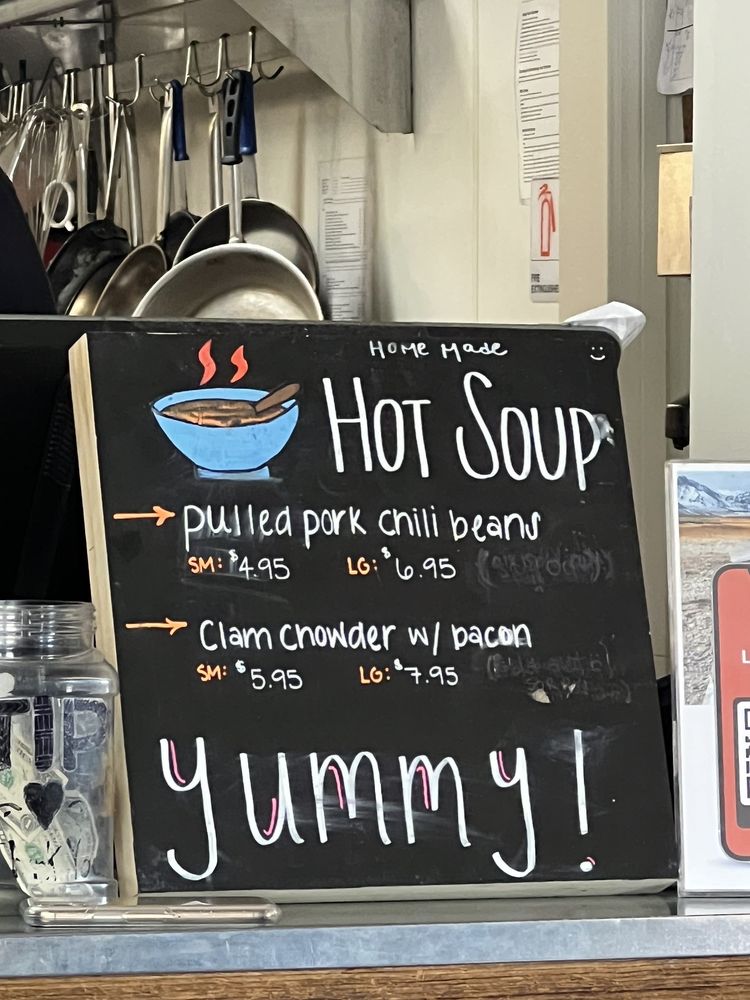 FIRE
EXTINGUISHER
HOME MADE
HOT SOUP
pulled pork chili beans
SM: $4.95 LG: $6.95
Clam Chowder w/ bacon
SM: $5.95 LG: $7.95
yummy!
TIP
L